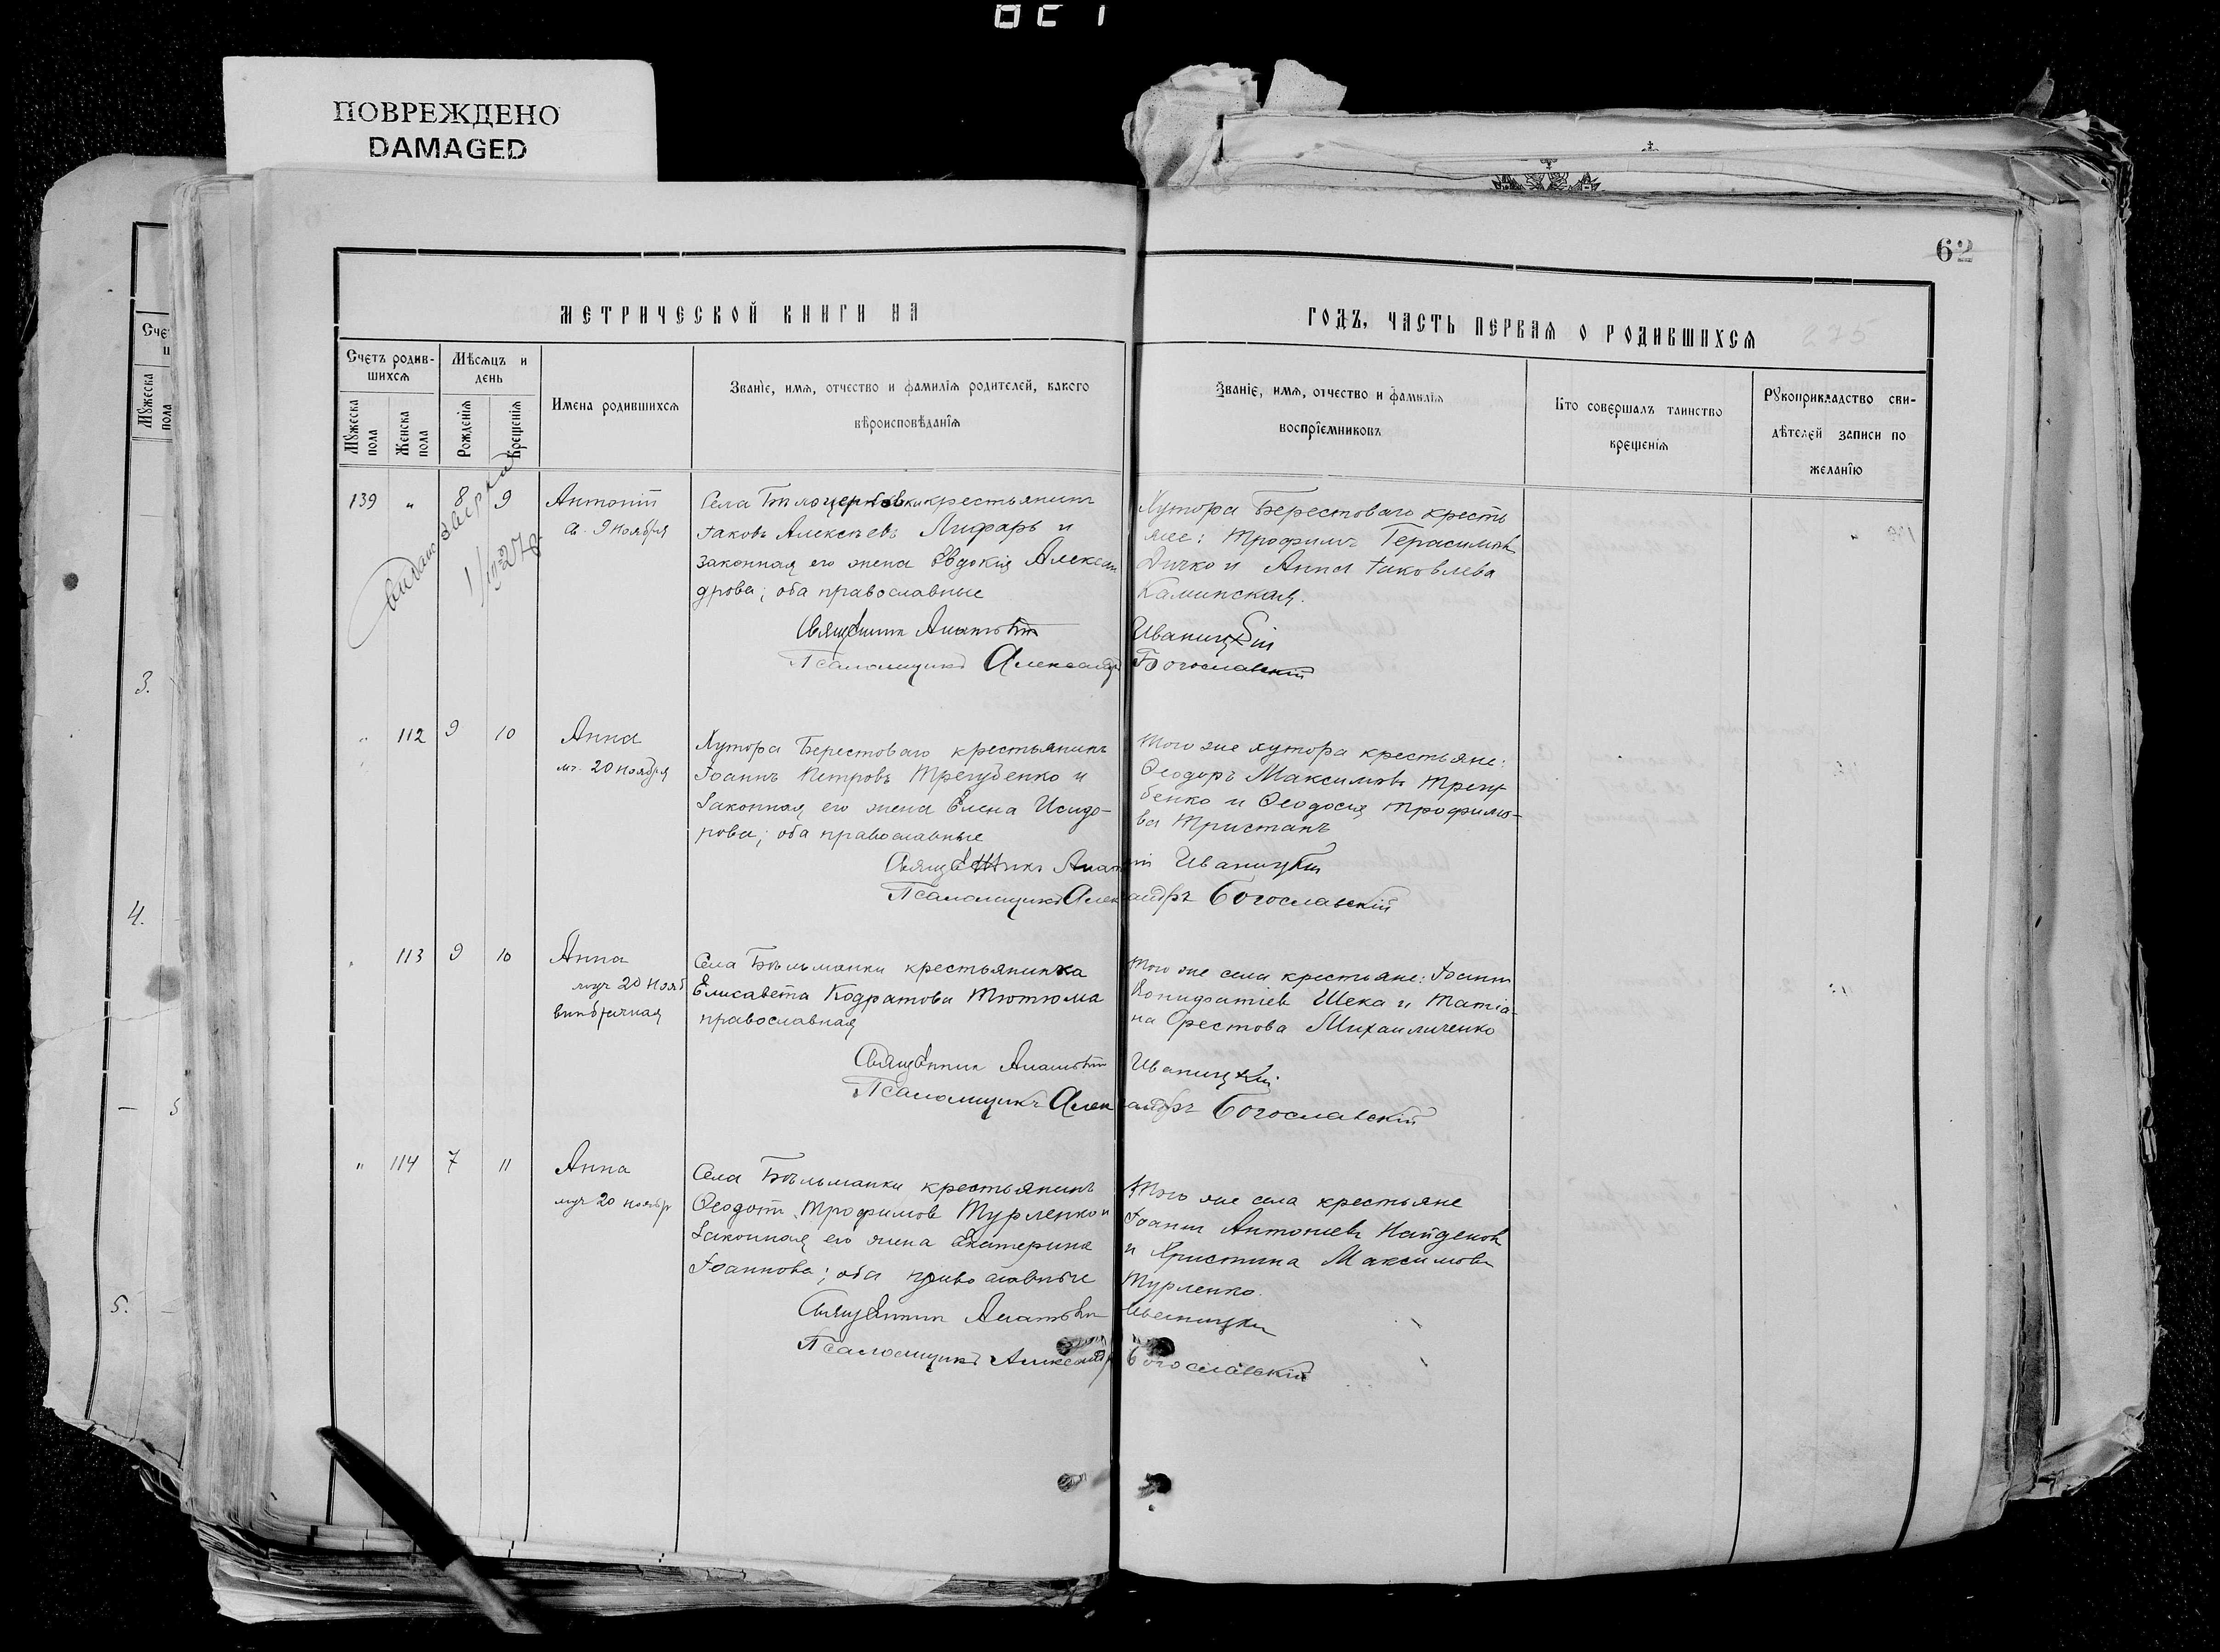 ПОВРЕЖДЕНО
DAMAGED
62
МЕТРИЧЕСКОЙ КНИГИ НА
ГОДЪ, ЧАСТЬ ПЕРВАЯ О РОДИВШИХСЯ
275
Счетъ родив-
шихся
Мѣсяцъ и
день
Мужеска
пола
Женска
пола
Рожденія
Крещенія
Имена родившихся
Званіе, имя, отчество и фамилія родителей, какого
вѣроисповѣданія
Званіе, имя, отчество и фамилія
воспріемниковъ
Кто совершалъ таинство
крещенія
Рукоприкладство сви-
дѣтелей записи по
желанію
139 " 8 9
Антоній
9 Ноября
Села Бѣлоцерковки крестьянинъ
Іаковъ Алексѣевъ Лифарь и
законная его жена Евдокія Алексан
дрова; оба православные
Хутора Берестоваго кресть
яне: Трофимъ Герасимовъ
Дичко и Анна Іаковлева
Каминская.
Священникъ Анатолій Иваницкій
Псаломщикъ Александръ Богославскій
" 112 9 10
Анна
мч. 20 Ноября
Хутора Берестоваго крестьянинъ
Іоаннъ Петровъ Трегубенко и
законная его жена Елена Исидо-
рова; оба православные
Того же хутора крестьяне:
Ѳеодоръ Максимовъ Трегу
бенко и Ѳеодосія Трофимо-
ва Тристанъ
Священникъ Анатолій Иваницкій
Псаломщикъ Александръ Богославскій
" 113 9 10
Анна
муч 20 Нояб
внебрачная
Села Бѣльманки крестьянинка
Елисавета Кодратова Тютюма
православная
Того же села крестьяне: Іоаннъ
Вонифатіев Шека и Татіа-
на Орестова Михаиличенко
Священникъ Анатолій Иваницкій
Псаломщикъ Александръ Богославскій
" 114 7 11
Анна
муч 20 ноябр
Села Бѣльманки крестьянинъ
Ѳеодотъ Трофимов Турленко и
законная его жена Екатерина
Іоаннова; оба православные
Того же села крестьяне
Іоаннъ Антоніевъ Найденов
и Христина Максимова
Турленко.
Священникъ Анатолій Иваницкій
Псаломщикъ Александръ Богославскій
3.
4.
5.